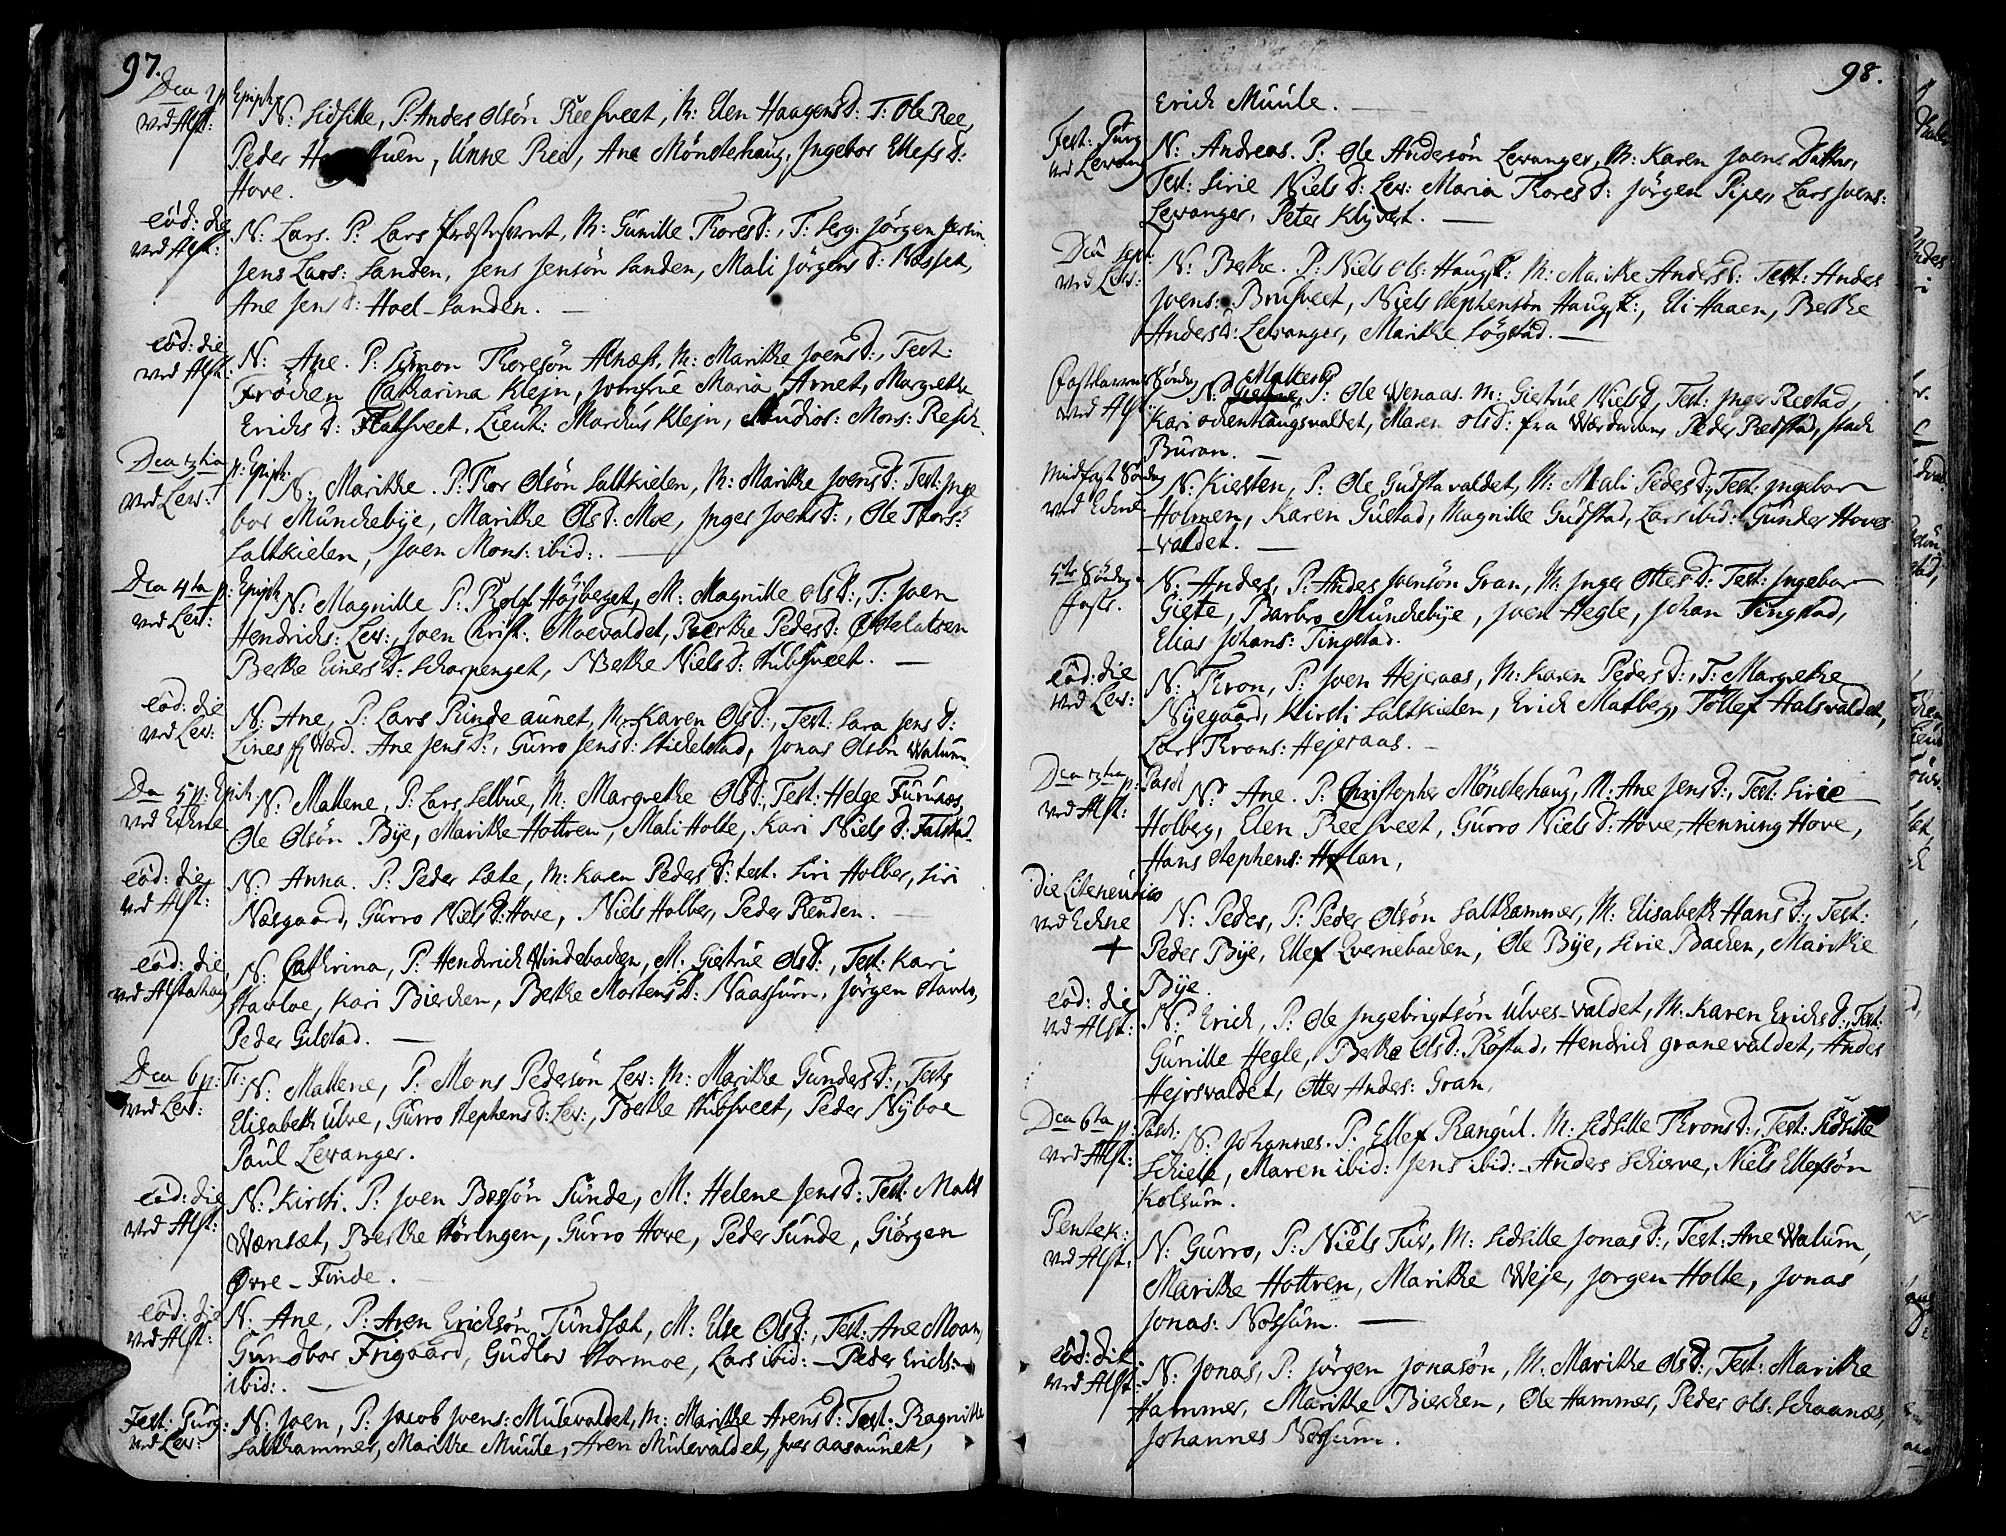 97.
Dca 2 p. Epiph.
ved Alst:
N: Sidsille, P. Anders Olsön Reesveet, M: Elen Haagens D: T: Ole Ree,
Peder, Unne Ree, Ane Mönsterhaug, Ingebor Ellefs D:
Hove.
eod: die
ved Alst:
N: Lars. P: Lars, M: Gunille Thores D:, T: Serg: Jörgen
Jens Lars: Sanden, Jens Jensön Sanden, Mali Jörgens D: Nesset,
Ane Jens D: Hoel-Sanden. —
eod: die
ved Alst:
N: Ane. P: Simon Thoresön Alnæss, M: Marithe Joens D:, Test:
Fröcken Catharina Klejn, Jomfrue Maria Arnet, Margrethe
Erichs D: Flatsveet. Lieut: Marchus Klejn, Studios: Mons: Resch.
Dca 3tia p: Epiph.
ved Lev:
N: Marithe. P: Thor Olsön Saltkielen, M: Marithe Joens D: Test: Inge
bor Münckebye, Marithe Ols D: Moe, Inger Joens D:, Ole Thors:
Saltkielen, Joen Mons: ibid:. —
Dca 4ta p: Epiph
ved Lev:
N: Magnille P: Rolf Højberget, M: Magnille Ols D:, T: Joen
Hendrichs: Lev:, Joen Christ: Moevaldet, Berthe Peders D:
Berthe Einers D: Scharpenget, Berthe Niels D: Stubsveet. —
eod: die
ved Lev:
N: Ane, P: Lars Rinde aunet, M: Karen Ols D:, Test: Sara Jens D:
Lines fr Værd. Ane Jens D:, Gurro Jens D: Stickelstad, Jonas Olsön Walum
Da 5 p: Epih
ved Echne
N: Mallene, P: Lars Selbue, M: Margrethe Ols D:, Test: Helge Furunæs,
Ole Olsön Bye, Marithe Hottren, Mali Holte, Kari Niels D: Falstad
eod: die
ved Alst:
N: Anna. P: Peder Læte, M: Karen Peders D: test. Siri Holber, Siri
Næsgaard, Gurro Niels D: Hove, Niels Holber, Peder Renden. —
eod: die
ved Alstahaug
N: Cathrina, P: Hendrich Vindebachen, M: Giertrue Ols D:, Test: Kari
Stavloe, Kari Bierchen, Berthe Mortens D: Naassum, Jörgen Stavlo,
Peder Gilstad. —
Dca 6 p: T:
ved Lev:
N: Mallene, P: Mons Pedersön Lev: M: Marithe Gunders D:, Test:
Elisabeth Ulve, Gurro Stephens D: Lev:, Berthe Stubsveet, Peder Nyboe
Paul Levanger.
eod: die
ved Alst:
N: Kirsti. P: Joen Boesön Sunde, M: Helene Jens D: Test: Malt
Wæresæt, Berthe Hörlngen, Gurro Hove, Peder Sunde, Giörgen
Øvre-Finde.
eod: die
ved Alst:
N: Ane, P: Aren Erichsön Tundsæt, M: Else Ols D:, Test: Ane Moan,
Gundbor Frigaard, Gudlov Stormoe, Lars ibid:—Peder Erichs:
ibid:. —
Fest: Purg:
ved Lev:
N: Joen, P: Jacob Joens: Mulevaldet, M: Marithe Arens D: Test: Ragnille
Salthammer, Marithe Muule, Aren Mulevaldet, Iver Aasaunet,
98.
Erich Muule. —
Fest: Purg
ved Levang
N: Andreas. P: Ole Andersön Levanger, M: Karen Joens Datter,
Test: Sirie Niels D: Lev: Maria Thores D: Jörgen Piper, Lars Joens:
Levanger, Peter Klyvert. —
Dca sept:
ved Lev:
N: Berthe. P: Niels Ols: Haugsk: M: Marithe Anders D: Test: Anders
Joens: Brusveet, Niels Stephensön Haugsk:, Eli Haaen, Berthe
Anders D: Levanger, Marithe Sögstad. —
Fastelavens Söndag
ved Alst:
Mallene
N: P: Ole Wenaas. M: Giertrue Niels D, Test: Inger Reestad,
Kari Ockenhaugsvaldet, Maren Ols D: fra Wærdalen, Peder Reestad, Isach
Buran. —
Midfast Söndag
ved Echne
N: Kiersten, P: Ole Gudstavaldet, M: Mali Peders D:, Test: Ingebor
Holmen, Karen Gustad, Magnille Gudstad, Lars ibid: Gunder Hoves
-valdet. —
5te Söndag
Faste.
N: Anders, P: Anders Joensön Gran, M: Inger Ottes D: Test: Ingebor
Giete, Barbro Münckebye, Joen Hegle, Johan Tingstad,
Elias Johans: Tingstad.
eod: die
ved Lev:
N: Thron, P: Joen Hejeraas, M: Karen Peders D:, T: Margrethe
Nyegaard, Kirsti Saltkielen, Erich Matberg, Tollef Halsvaldet,
Lars Throns: Hejeraas. —
Dca 3tia p: Pasch
ved Alst:
N: Ane. P: Christopher Mönsterhaug, M: Ane Jens D:, Test: Sirie
Holberg, Elen Reesveet, Gurro Niels D: Hove, Henning Hove,
Hans Stephens: Hoflan,
Die
ved Echne
+
N: Peder, P: Peder Olsön Salthammer, M: Elisabeth Hans D:, Test:
Peder Bye, Ellef Qvernebachen, Ole Bye, Sirie Bachen, Marithe
Bye.
eod: die
ved Alst:
N: Erich, P: Ole Ingebrigtsön Ulves-valdet, M: Karen Erichs D:, Test:
Gunille Hegle, Berthe Ols D: Röstad, Hendrich granevaldet, Anders
Hejrsvaldet, Otter Anders: Gran.
Dca 6ta p: Pasch:
ved Alst:
N: Johannes. P: Ellef Rangul. M: Sidsille Throns D:, Test: Sidsille
Schiele, Maren ibid: Jens ibid:- Anders Schierve, Niels Ellefsön
Kolsum.
Pentek:
ved Alst:
N: Gurro, P: Niels Tuv, M: Sidsille Jonas D:, Test: Ane Walum,
Marithe Hottren, Marithe Weje, Jorgen Holte, Jonas
Jonas: Nossum. —
eod: die
ved Alst:
N: Jonas, P: Jörgen Jonasön, M: Marithe Ols D:, Test: Marithe
Hammer, Marithe Bierchen, Ole Hammer, Peder Ols: Schaanes,
Johannes Nossum.